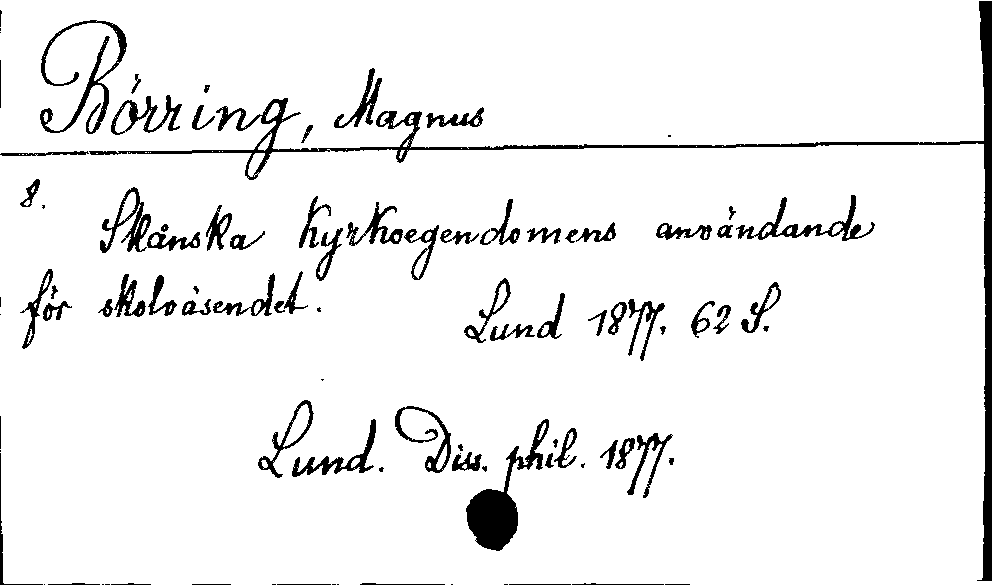 Börring, Magnus
8.
Skånska Kyrkoegendomens användande
för skolväsendet.
Lund 1877. 62 S.
Lund. Diss. phil. 1877.